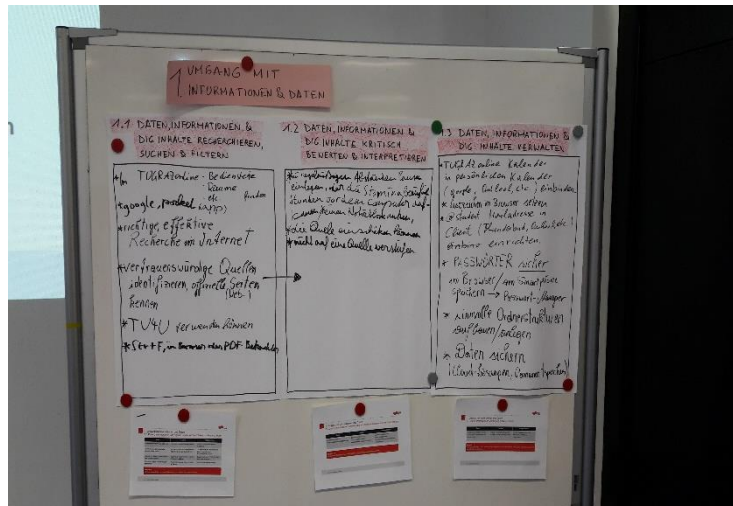 1. UMGANG MIT
INFORMATIONEN & DATEN
1.1 DATEN, INFORMATIONEN &
DIG INHALTE RECHERCHIEREN,
SUCHEN & FILTERN
* In TUGRAZonline - Bedienstete
- Räume
- etc finden
* google, (app)
* richtige, effektive
Recherche im Internet
* vertrauenswürdige Quellen
identifizieren, offizielle Seiten
kennen (Web-)
* TU4U verwenden können
* Str+F, im Browser oder PDF
1.2 DATEN, INFORMATIONEN &
DIG INHALTE KRITISCH
BEWERTEN & INTERPRETIEREN
* in regelmäßigen Abständen
einlegen,
Stunden vor dem Computer
* die Quelle einschätzen können
* nicht auf eine Quelle versteifen
1.3 DATEN, INFORMATIONEN &
DIG INHALTE VERWALTEN
* TUGRAZonline Kalender
in persönlichen Kalender
(google, Outlook, etc.) einbinden
* Lesezeichen im Browser setzen
* @student Mailadresse in
Client (Thunderbird, Outlook, etc.)
einrichten
* PASSWÖRTER sicher
im Browser/am Smartphone
speichern → Passwort-Manager
* sinnvolle Ordnerstrukturen
aufbauen/anlegen
* Daten sichern
(Cloud-Lösungen,